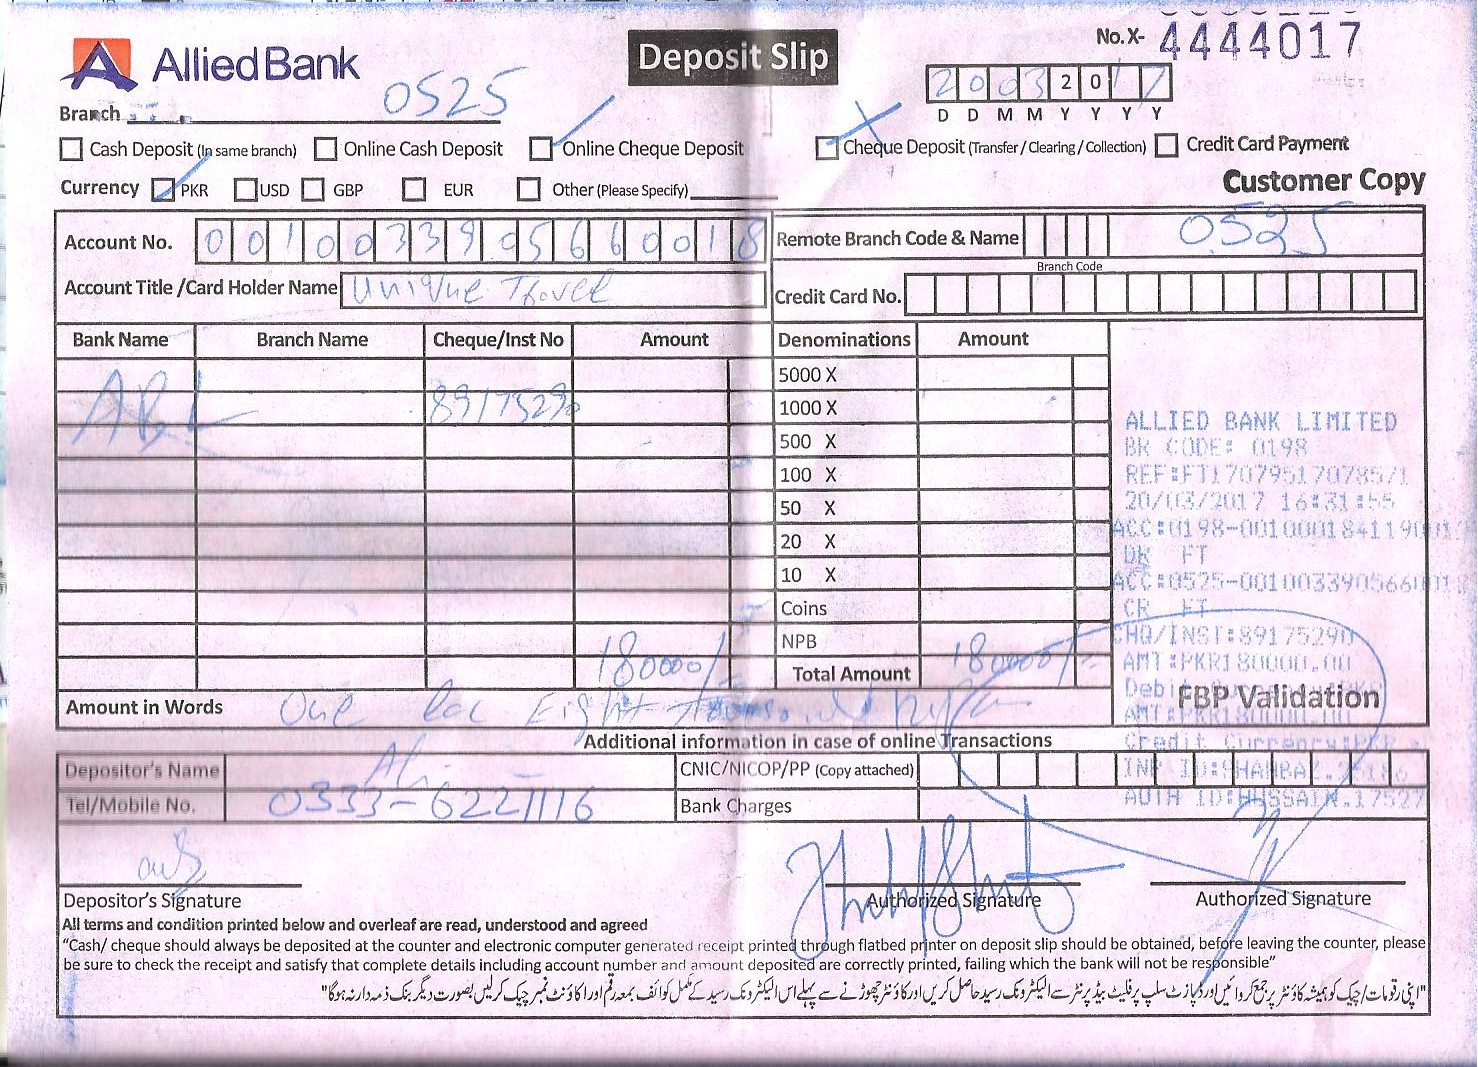 Allied Bank
Deposit Slip
No. X- 4444017
20032017
D D M M Y Y Y Y
Branch 0525
Cash Deposit (In same branch) Online Cash Deposit Online Cheque Deposit Cheque Deposit (Transfer / Clearing / Collection) Credit Card Payment
Currency PKR USD GBP EUR Other (Please Specify)
Customer Copy
Account No. 0010033905660018
Remote Branch Code & Name 0525
Branch Code
Account Title /Card Holder Name Unique Travel
Credit Card No.
Bank Name Branch Name Cheque/Inst No Amount Denominations Amount
5000 X
ABL 89175290 1000 X
500 X
100 X
50 X
20 X
10 X
Coins
NPB
180000/- Total Amount 180000/-
ALLIED BANK LIMITED
BR CODE: 0198
REF:FT17079517078571
20/03/2017 16:31:55
ACC:0198-0010001841190017
DR FT
ACC:0525-0010033905660018
CR FT
CHQ/INST:89175290
AMT:PKR180000.00
FBP Validation
AMT:PKR180000.00
Credit Currency:PKR
Amount in Words One lac Eight thousand
Additional information in case of online Transactions
Depositor's Name Ali CNIC/NICOP/PP (Copy attached)
INP ID:SHAHBAZ.25186
Tel/Mobile No. 0333-6221116 Bank Charges
AUTH ID:HUSSAIN.17527
Depositor's Signature Authorized Signature Authorized Signature
All terms and condition printed below and overleaf are read, understood and agreed
"Cash/ cheque should always be deposited at the counter and electronic computer generated receipt printed through flatbed printer on deposit slip should be obtained, before leaving the counter, please
be sure to check the receipt and satisfy that complete details including account number and amount deposited are correctly printed, failing which the bank will not be responsible"
"اپنی رقومات/چیک کو ہمیشہ کاؤنٹر پر جمع کروائیں اور ڈپازٹ سلپ پر فلیٹ بیڈ پرنٹر سے الیکٹرونک رسید حاصل کریں اور کاؤنٹر چھوڑنے سے پہلے اس الیکٹرونک رسید کے مکمل کوائف بمعہ رقم اور اکاؤنٹ نمبر چیک کرلیں بصورت دیگر بنک ذمہ دار نہ ہوگا"